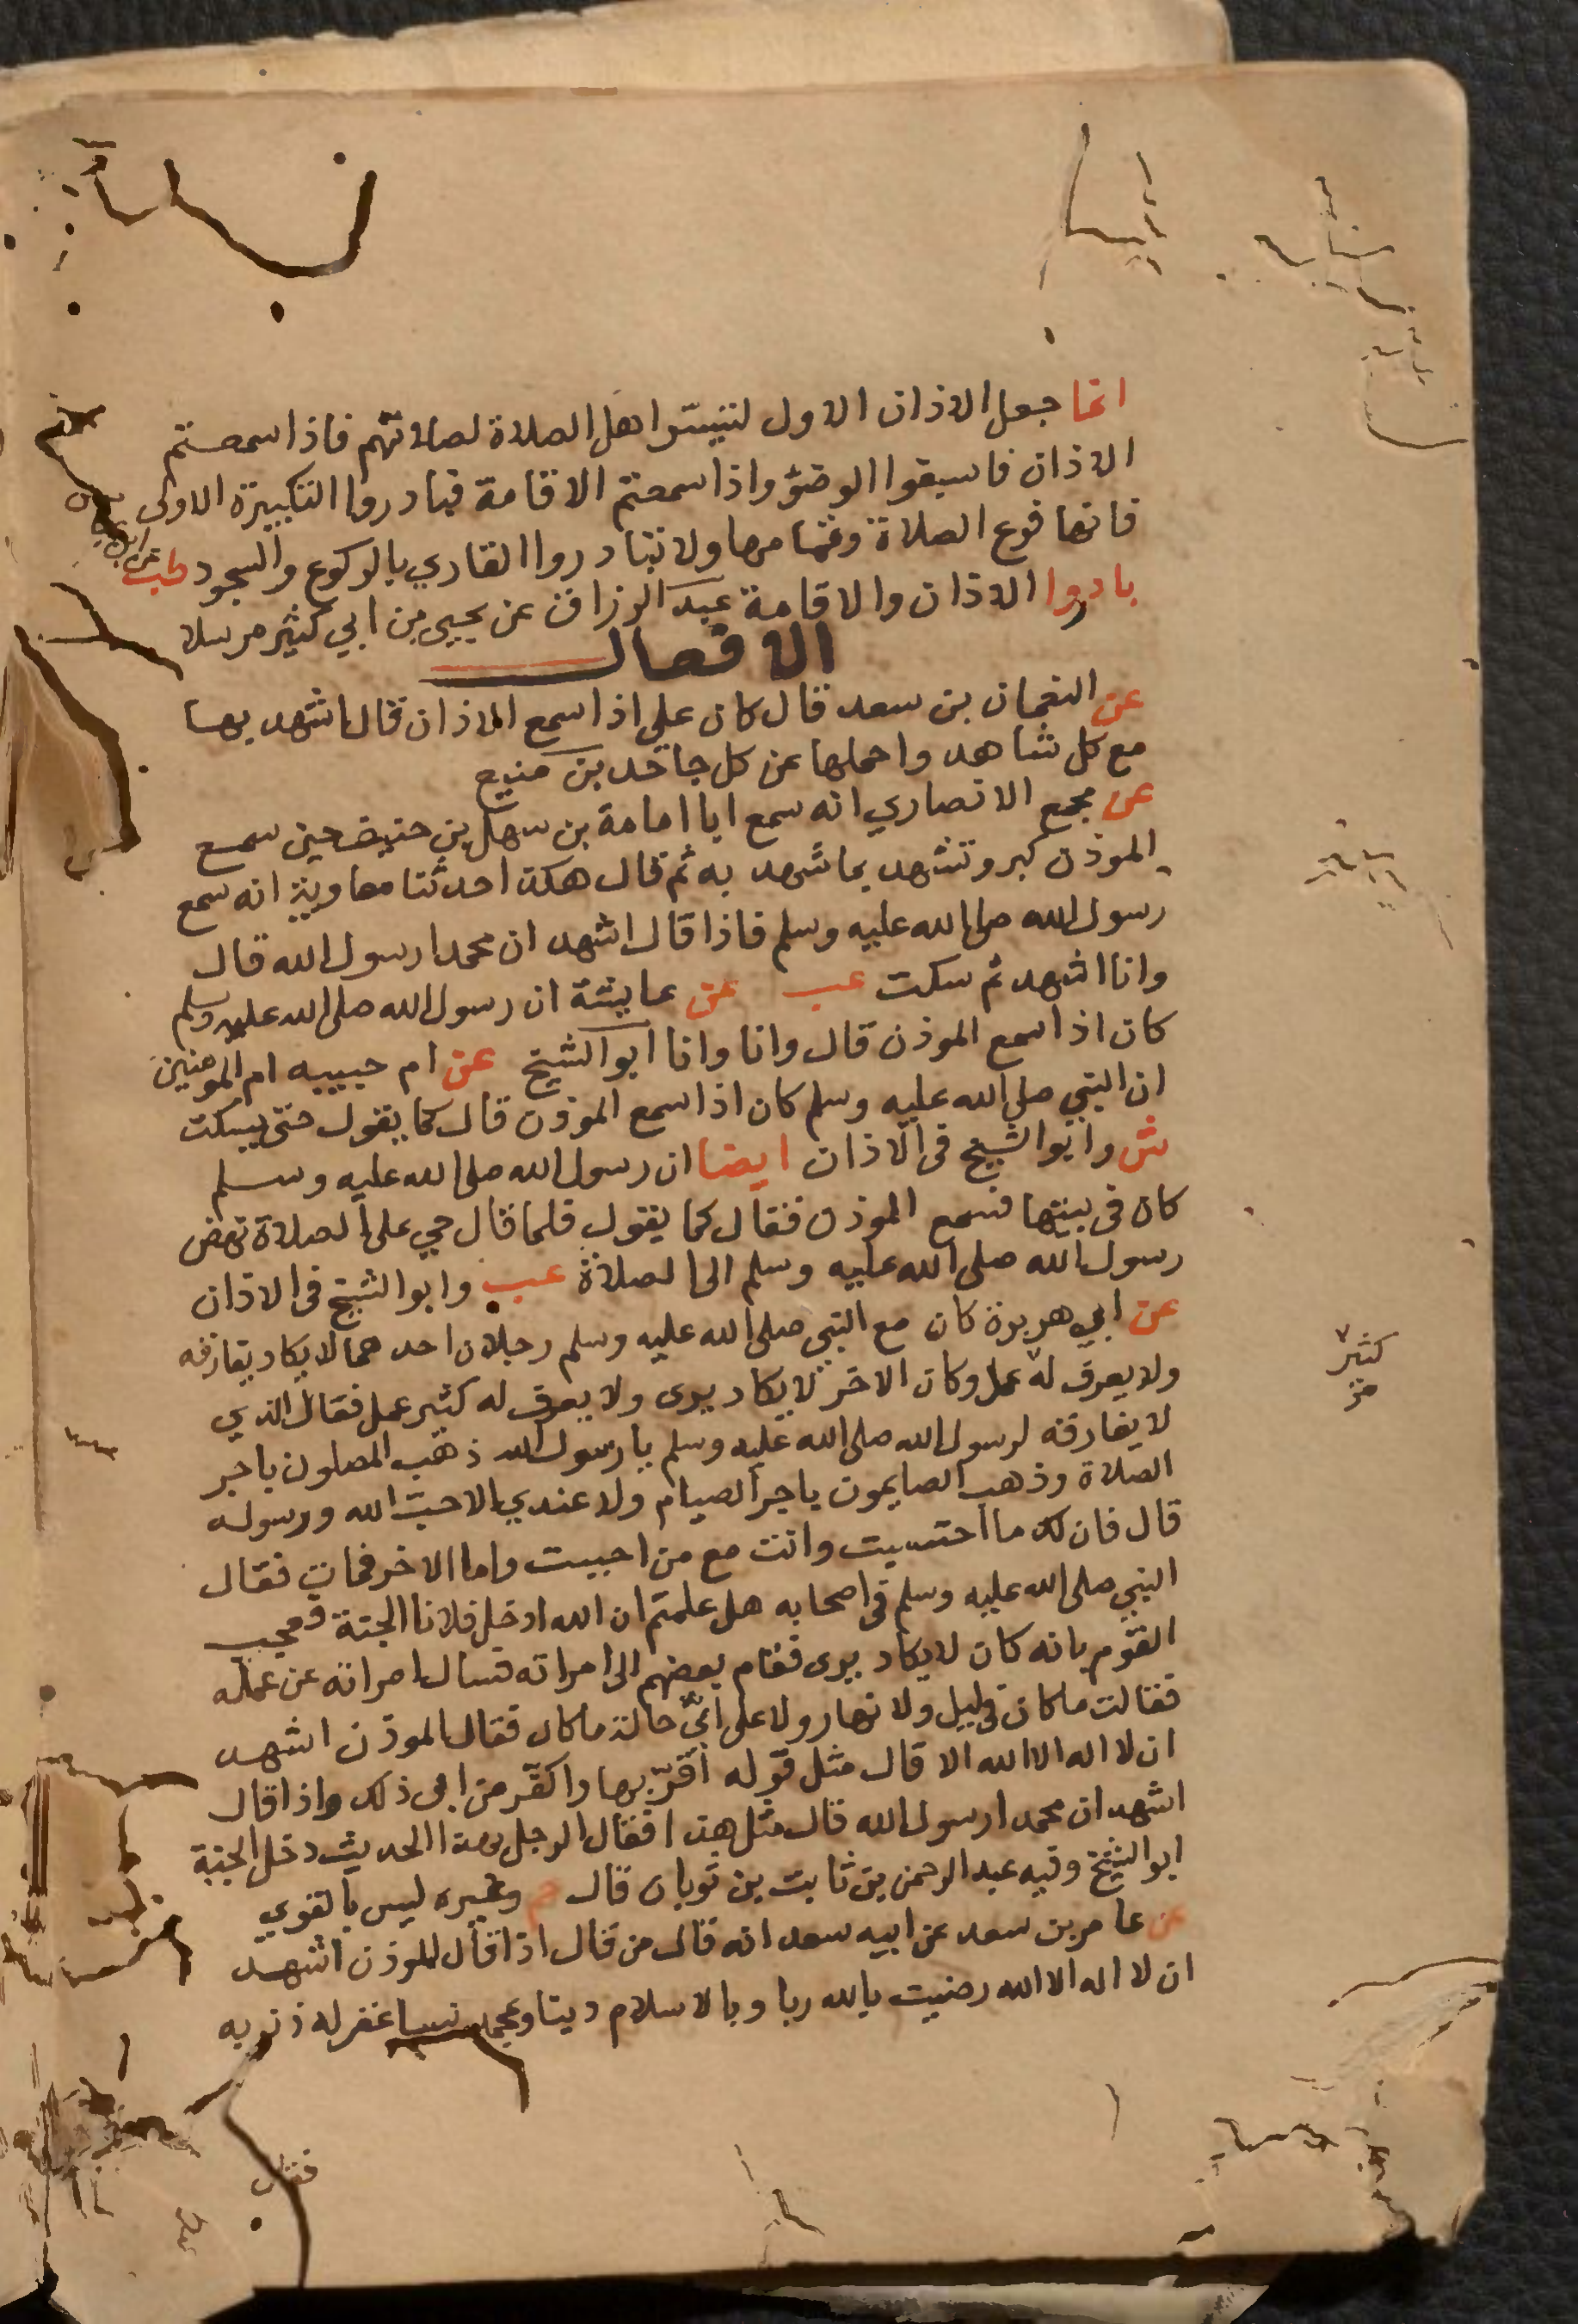 انما جعل الاذان الاول لتيسر اهل الصلاة لصلاتهم فاذا سمعتم
الاذان فاسبقوا الوضؤ واذا سمعتم الاقامة فبادروا التكبيرة الاولى
فانها فرع الصلاة وتمامها ولا تبادروا القاري بالركوع والسجود طب عن
بادروا الاذان والاقامة عبد الرزاق عن يحيى بن ابي كثير مرسلا
الافعال
عن النعمان بن سعد قال كان علي اذا سمع الاذان قال اشهد بها
مع كل شاهد واحملها عن كل جاحد بن منيع
عن مجمع الانصاري انه سمع ابا امامة بن سهل بن حنيف حين سمع
الموذن كبر وتشهد بما شهد به ثم قال هكذا حدثنا معاوية انه سمع
رسول الله صلى الله عليه وسلم فاذا قال اشهد ان محمدا رسول الله قال
وانا اشهد ثم سكت عب عن عايشة ان رسول الله صلى الله عليه وسلم
كان اذا سمع الموذن قال وانا وانا ابو الشيخ عن ام حبيبه ام المومنين
ان النبي صلى الله عليه وسلم كان اذا سمع الموذن قال كما يقول حتى يسكت
ش وابو الشيخ فى الاذان ايضا ان رسول الله صلى الله عليه وسلم
كان فى بيتها فسمع الموذن فقال كما يقول فلما قال حي على الصلاة نهض
رسول الله صلى الله عليه وسلم الى الصلاة عب وابو الشيخ فى الاذان
عن ابي هريرة كان مع النبي صلى الله عليه وسلم رجلان احدهما لا يكاد يفارقه
ولا يعرف له عمل وكان الاخر لا يكاد يرى ولا يعرف له كثير عمل فقال الذي
كثير
لا يفارقه لرسول الله صلى الله عليه وسلم يا رسول الله ذهب المصلون باجر
الصلاة وذهب الصايمون باجر الصيام ولا عندي الا حب الله ورسوله
قال فان لك ما احتسبت وانت مع من احببت واما الاخر فمات فقال
النبي صلى الله عليه وسلم فى اصحابه هل علمتم ان الله ادخل فلانا الجنة فعجب
القوم بانه كان لا يكاد يرى فقام بعضهم الى امراته فسال امراته عن عمله
فقالت ما كان فى ليل ولا نهار ولا على اي حالة ما كان فقال الموذن اشهد
ان لا اله الا الله الا قال مثل قوله اقر بها واكفر من ابى ذلك واذا قال
اشهد ان محمدا رسول الله قال مثل هذا فقال الرجل بهذا الحديث دخل الجنة
ابو الشيخ وفيه عبد الرحمن بن ثابت بن ثوبان قال حم وغيره ليس بالقوي
عن عامر بن سعد عن ابيه سعد انه قال من قال اذا قال الموذن اشهد
ان لا اله الا الله رضيت بالله ربا وبالاسلام دينا وبمحمد نبيا غفر له ذنوبه
فقال